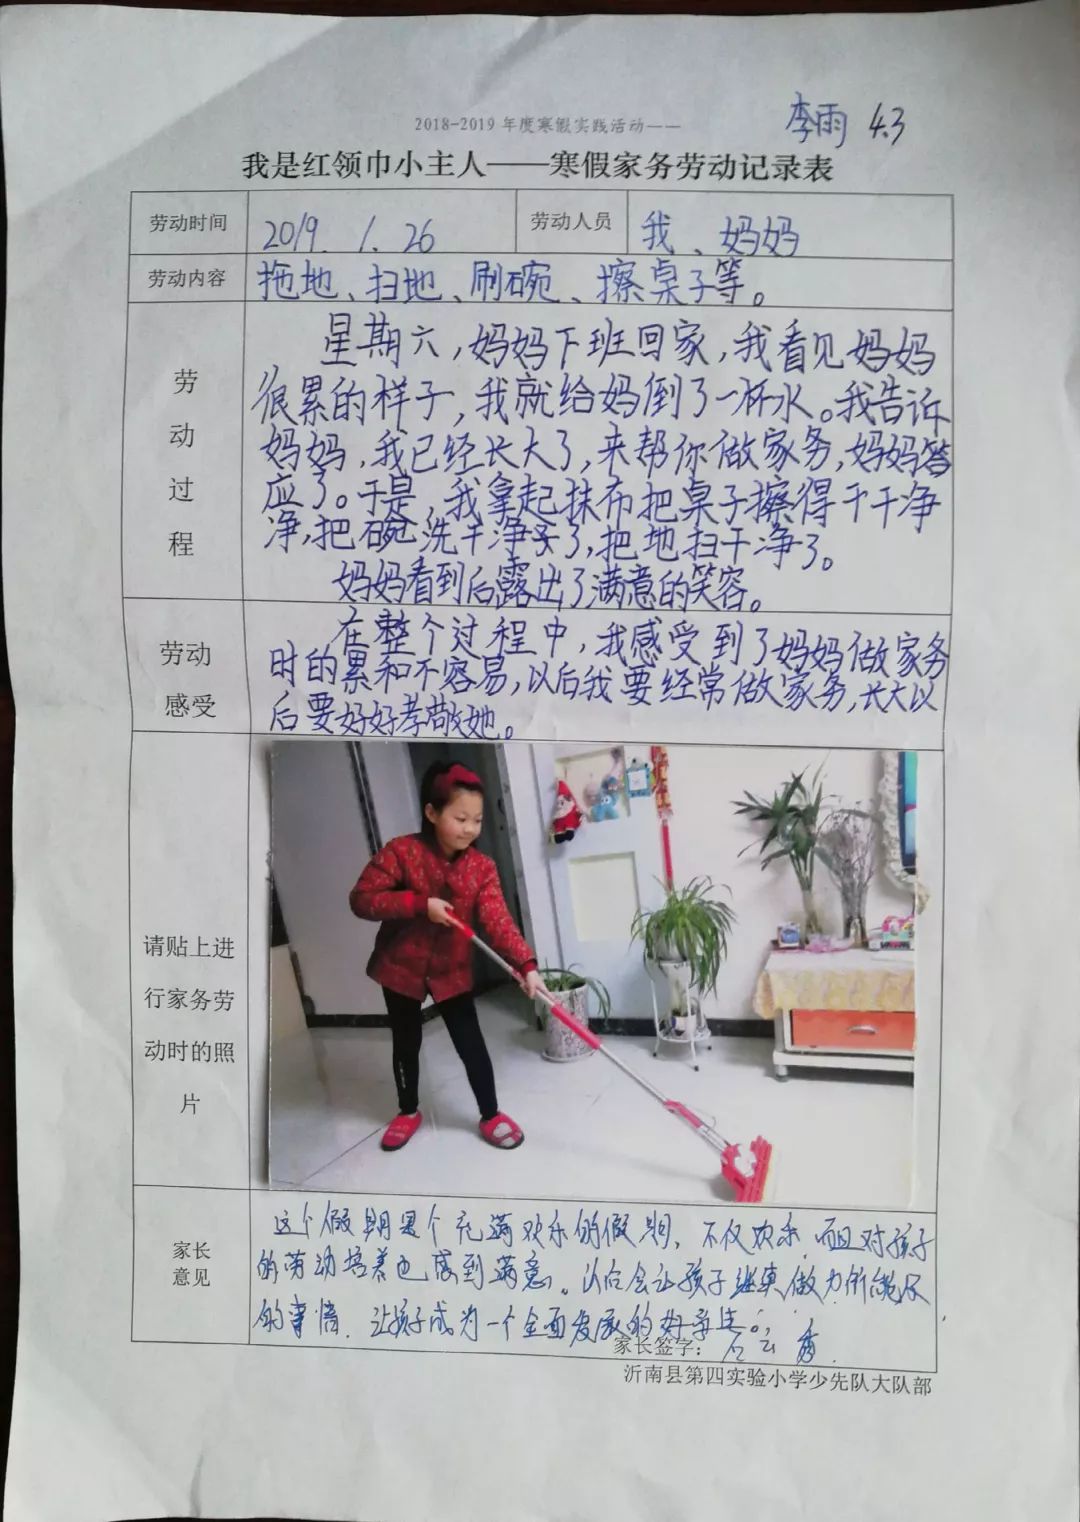 李雨 4.3
2018-2019年度寒假实践活动——
我是红领巾小主人——寒假家务劳动记录表
劳动时间 2019. 1. 26 劳动人员 我、妈妈
劳动内容 拖地、扫地、刷碗、擦桌子等。
劳动过程
星期六,妈妈下班回家,我看见妈妈
很累的样子,我就给妈倒了一杯水。我告诉
妈妈,我已经长大了,来帮你做家务,妈妈答
应了。于是,我拿起抹布把桌子擦得干干净
净,把碗洗干净了,把地扫干净了。
妈妈看到后露出了满意的笑容。
劳动感受
在整个过程中,我感受到了妈妈做家务
时的累和不容易,以后我要经常做家务,长大以
后要好好孝敬她。
请贴上进
行家务劳
动时的照
片
家长
意见
这个假期是个充满欢乐的假期,不仅欢乐,而且对孩子
的劳动培养也感到满意。以后会让孩子继续做力所能及
的事情,让孩子成为一个全面发展的好学生。
家长签字:
沂南县第四实验小学少先队大队部